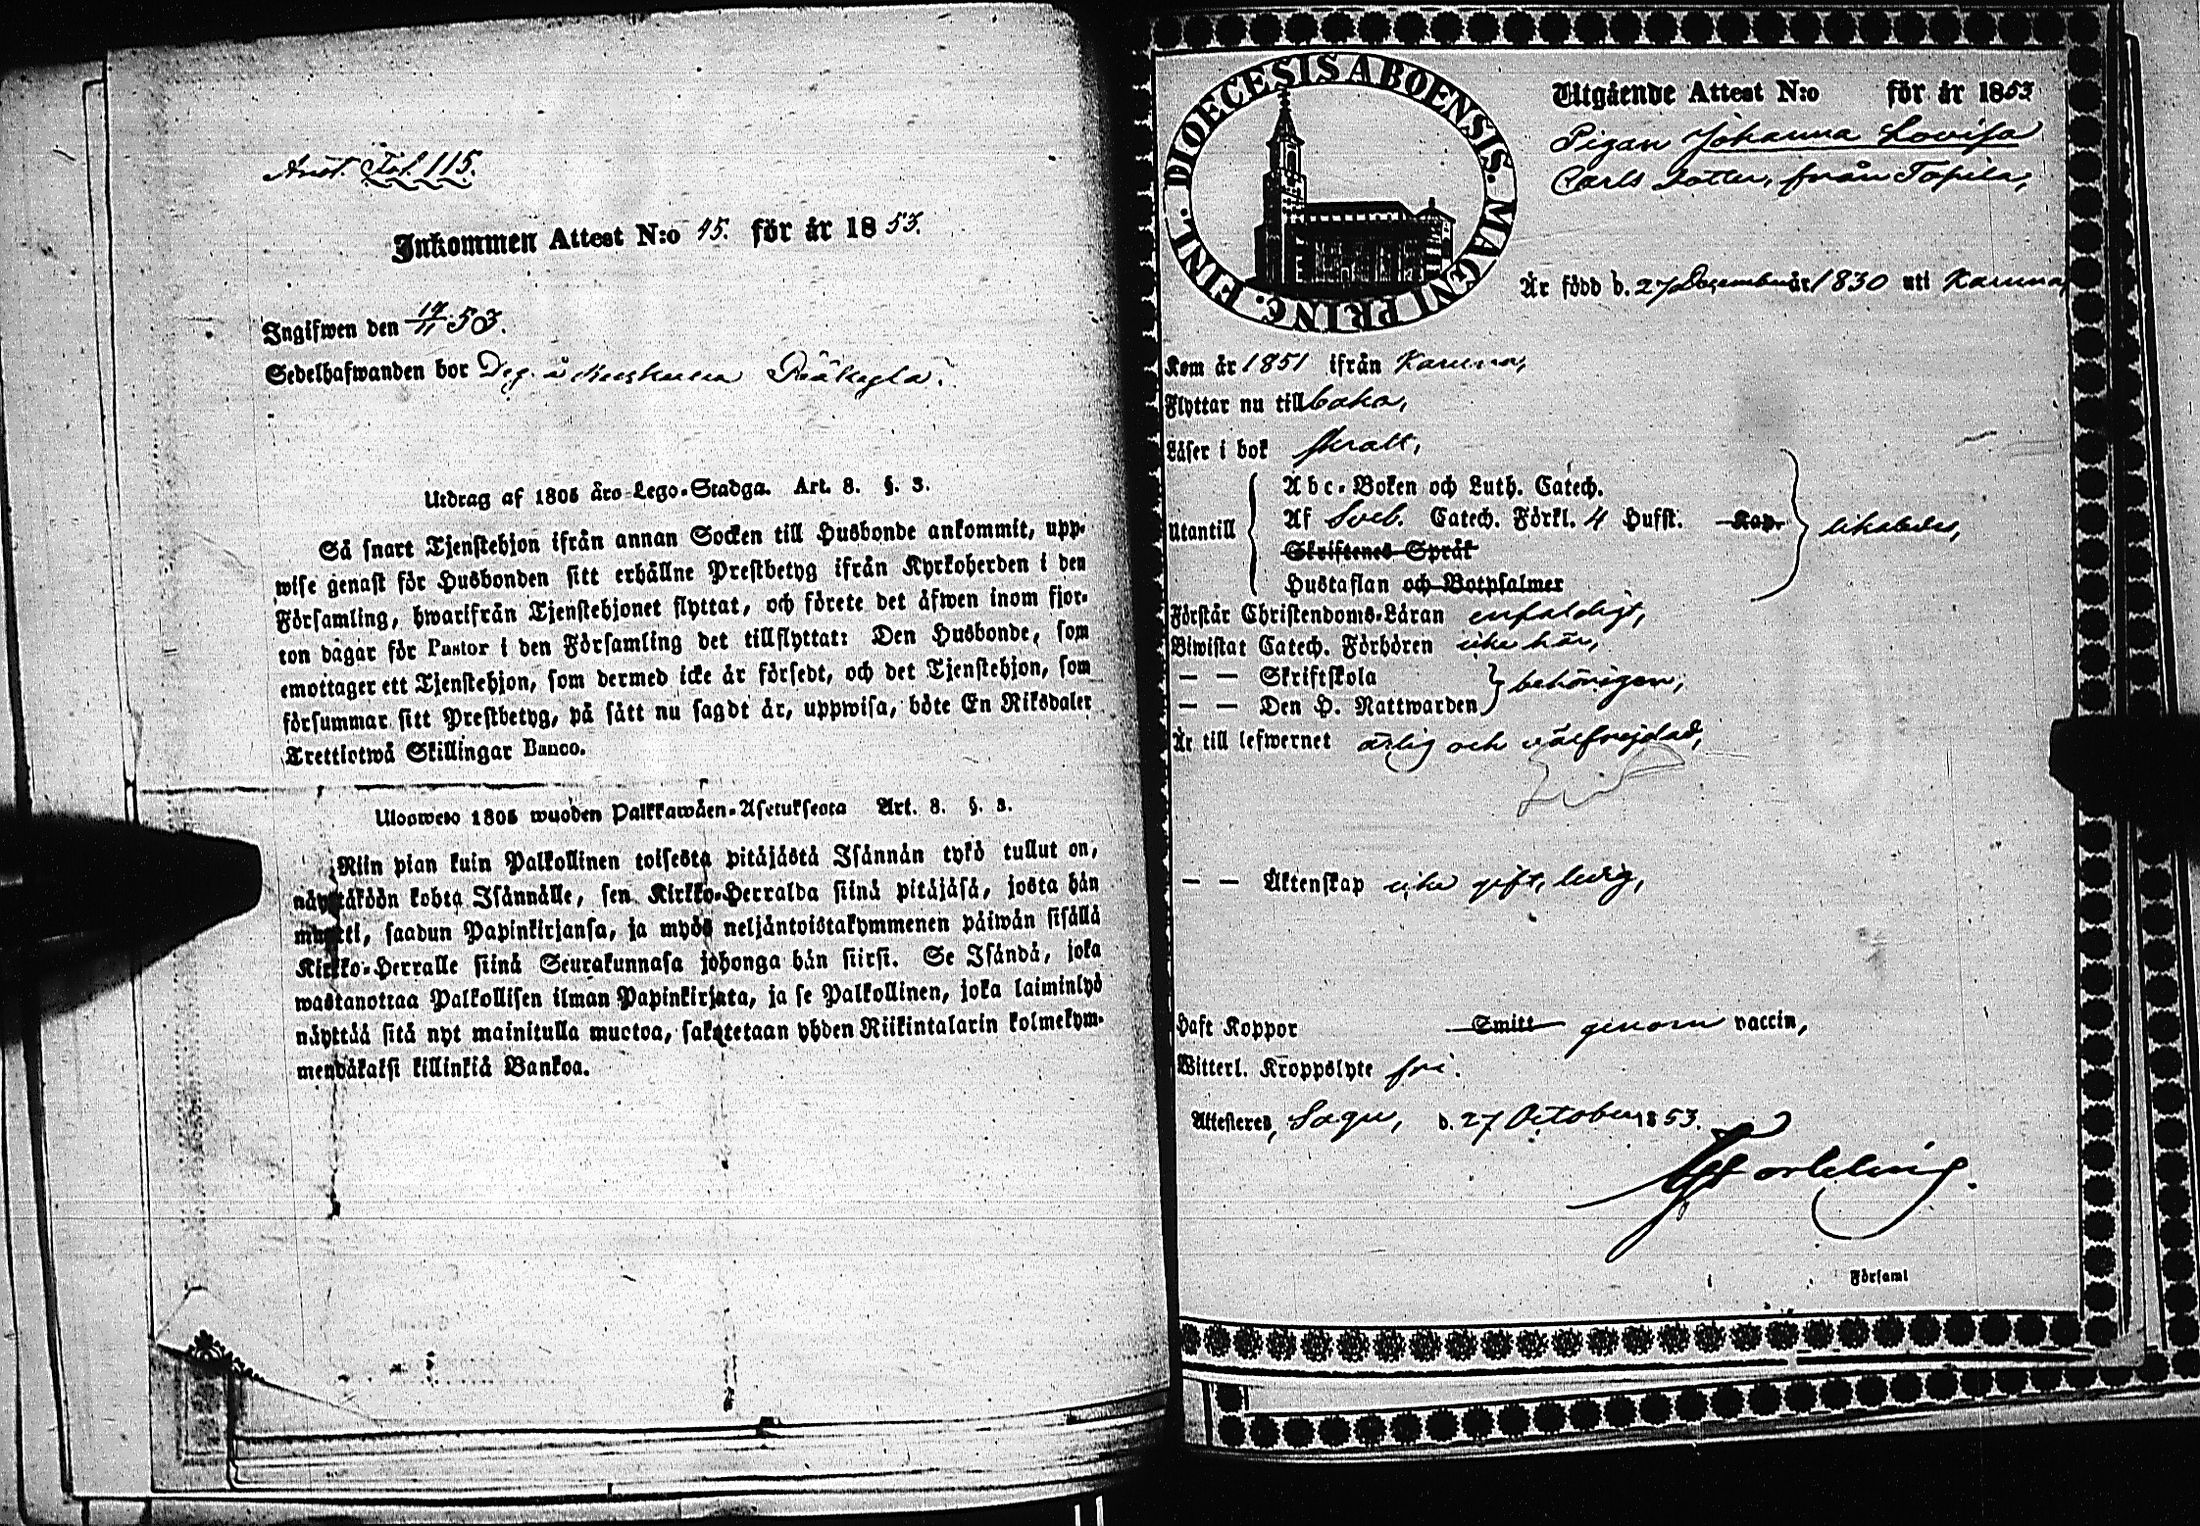 Anot. Fol. 115.
Inkommen Attest N:o 45. för år 1853.
Ingifwen den 17/11 53.
Sedelhafwanden bor Pig. å
Utdrag af 1805 års Lego-Stadga. Art. 8. §. 3.
Så snart Tjenstehjon ifrån annan Socken till Husbonde ankommit, upp-
wise genast för Husbonden sitt erhållne Prestbetyg ifrån Kyrkoherden i den
Församling, hwarifrån Tjenstehjonet flyttat, och förete det äfwen inom fjor-
ton dagar för Pastor i den Församling det tillflyttat: Den Husbonde, som
emottager ett Tjenstehjon, som dermed icke är försedt, och det Tjenstehjon, som
försummar sitt Prestbetyg, på sätt nu sagdt är, uppwisa, böte En Riksdaler
Trettiotwå Skillingar Banco.
Uloswetto 1805 wuoden Palkkawäen-Asetuksesta Art. 8. §. 3.
Niin pian kuin Palkollinen toisesta pitäjästä Isännän tykö tullut on,
näyttäköön kohta Isännälle, sen Kirkko-Herralda siinä pitäjäsä, josta hän
muutti, saadun Papinkirjansa, ja myös neljäntoistakymmenen päiwän sisällä
Kirkko-Herralle siinä Seurakunnasa johonga hän siirsi. Se Isändä, joka
wastanottaa Palkollisen ilman Papinkirjata, ja se Palkollinen, joka laiminlyö
näyttää sitä nyt mainitulla muotoa, sakotetaan yhden Riikintalarin kolmekym-
mendäkaksi killinkiä Bankoa.
DIOECESIS ABOENSIS. MAGNI PRINC. FINL.
Utgående Attest N:o för år 1853
Pigan Johanna Lovisa
Carls dotter, från Topila,
Är född d. 27 December år 1830 uti Karuna,
Kom år 1851 ifrån Karuna,
Flyttar nu tillbaka,
Läser i bok svalt,
Utantill
Abc-Boken och Luth. Catech.
Af Sveb. Catech. Förkl. 4 Hufst. Kap. likaledes,
Skriftenes Språk
Hustaflan och Botpsalmer
Förstår Christendoms-Läran enfaldigt,
Biwistat Catech. Förhören icke här,
— — Skriftskola
— — Den H. Nattwarden behörigen,
Är till lefwernet ärlig och välfrejdad,
— — Äktenskap icke gift, ledig,
Haft Koppor Smitt genom vaccin,
Witterl. Kroppslyte fri.
Attesteres, Sagu, d. 27 October 1853.
i Församl